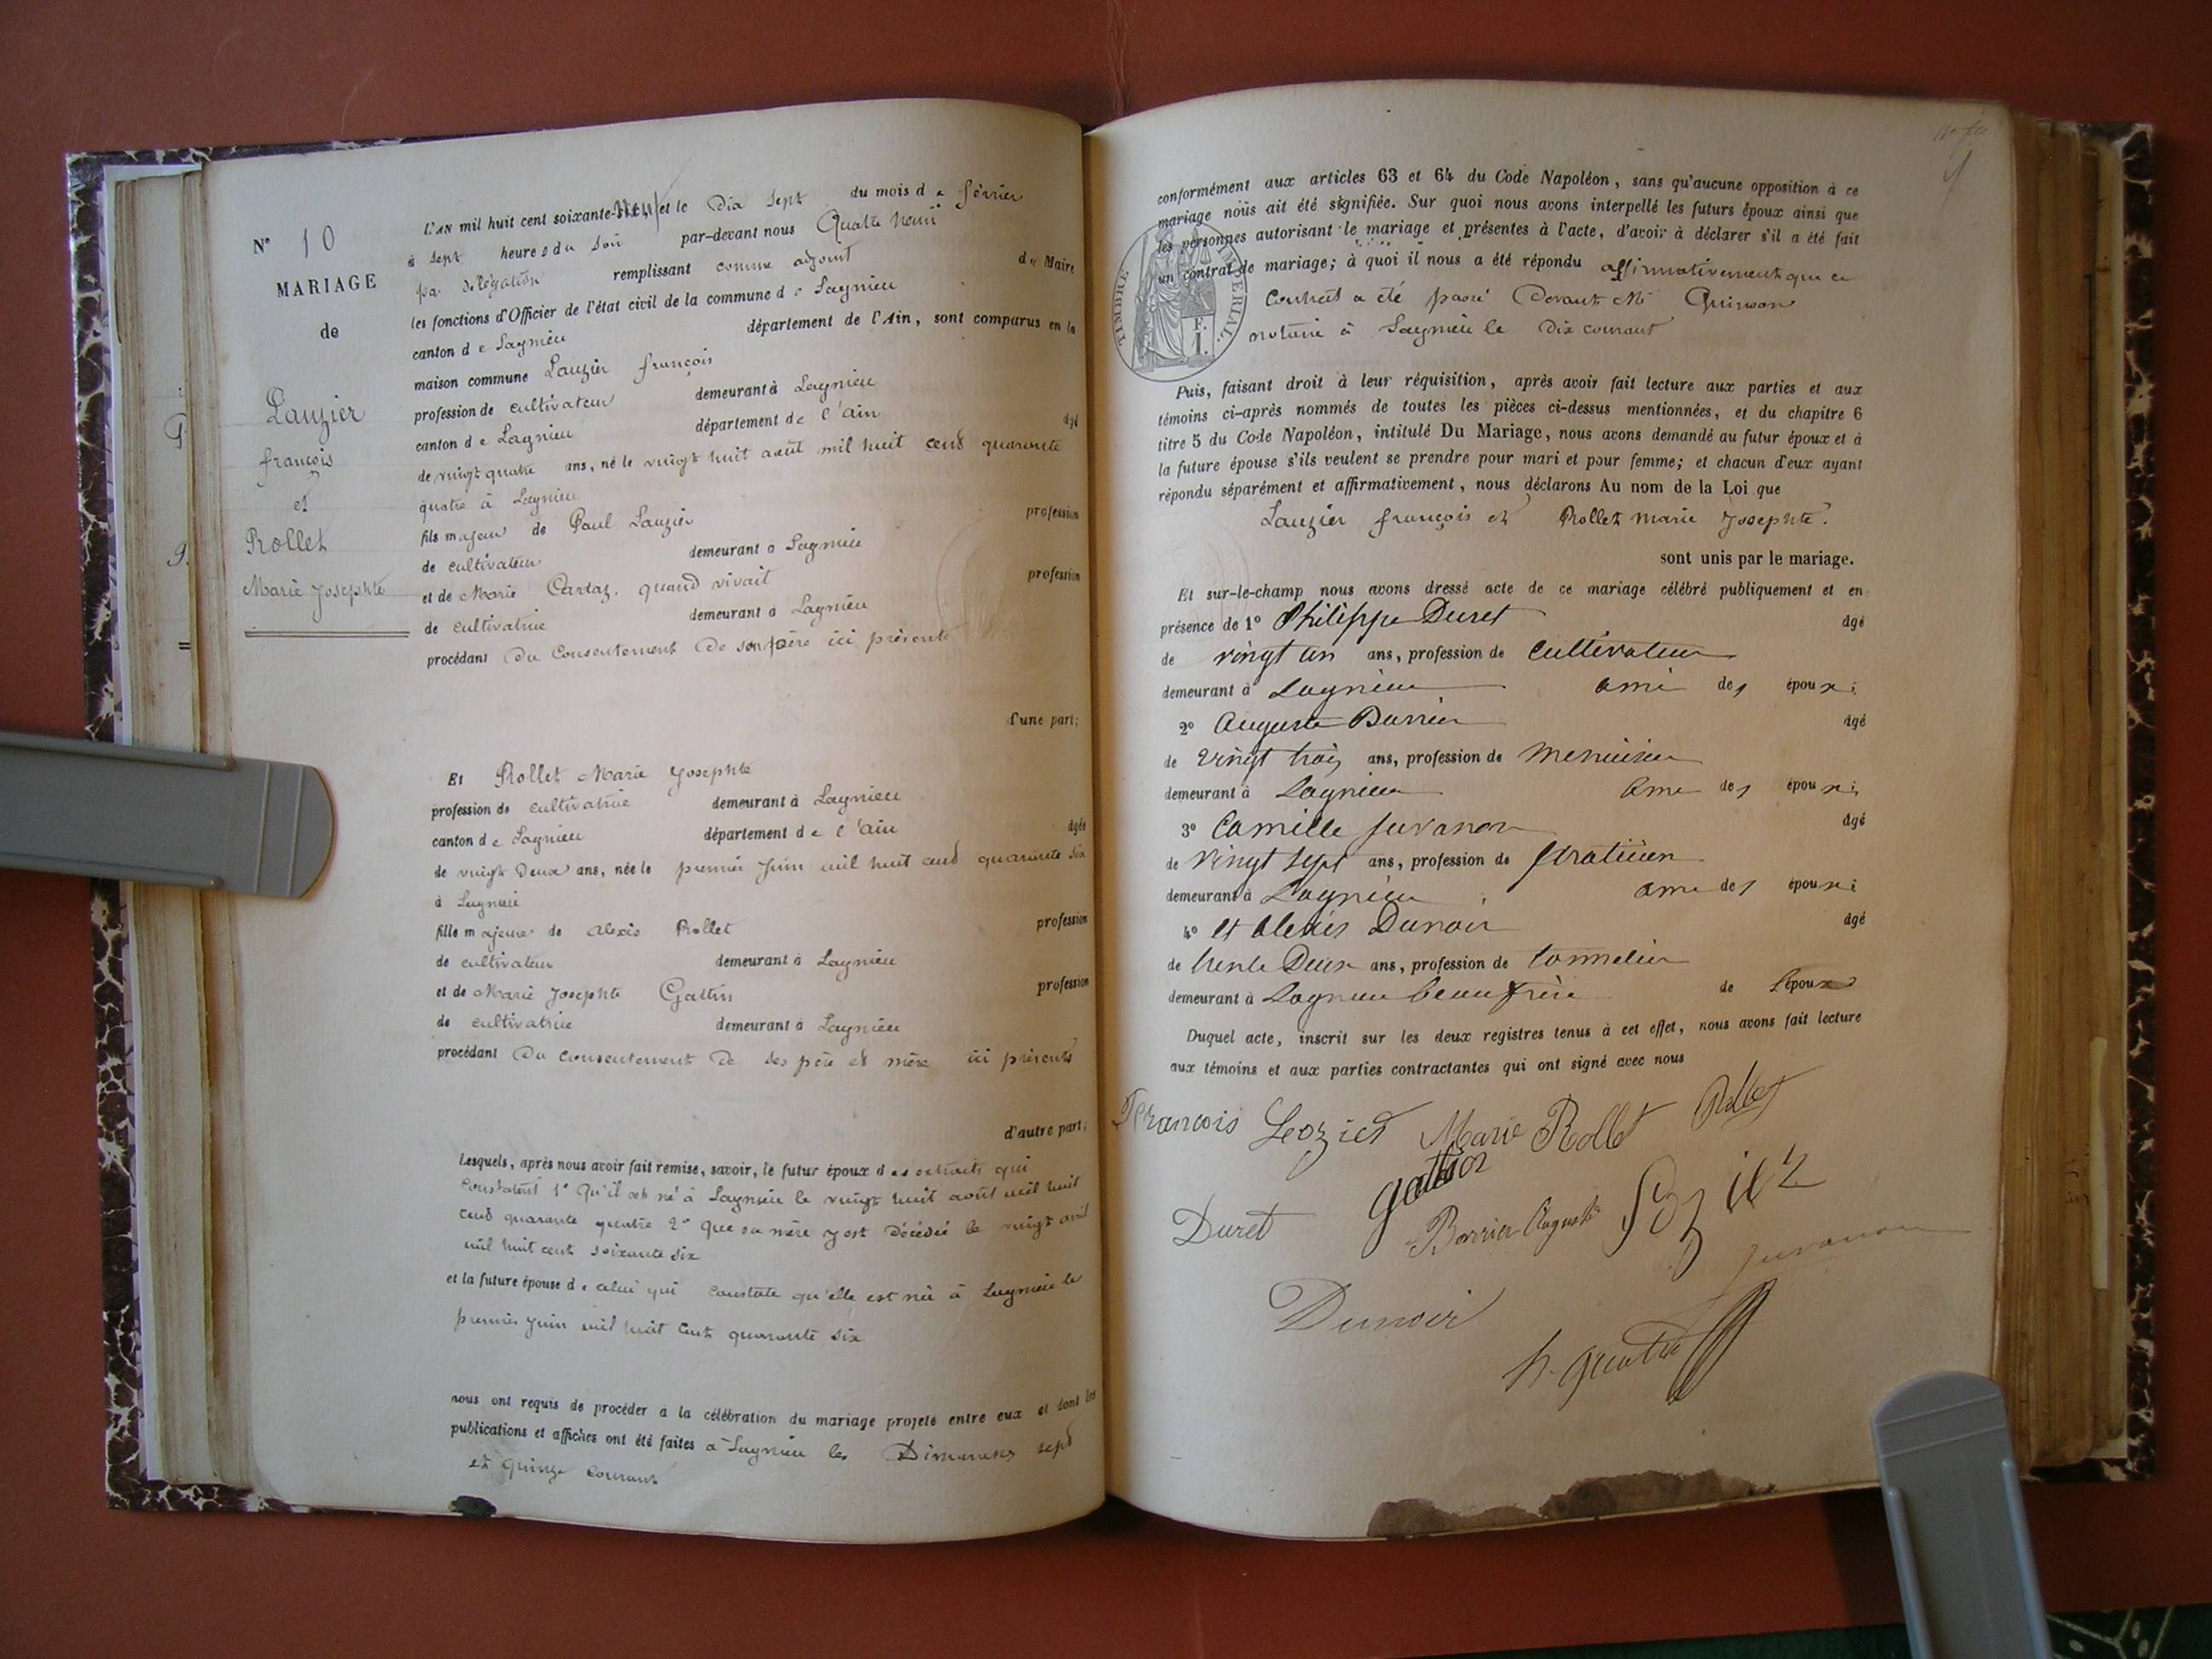 N° 10
MARIAGE
de
Lauzier
françois
et
Rollet
Marie Josephte
L'AN mil huit cent soixante- et le Dix Sept du mois de février
à Sept heures du Soir par-devant nous Quatre henri
par délégation remplissant comme adjoint du Maire
les fonctions d'Officier de l'état civil de la commune de Lagnieu
canton de Lagnieu département de l'Ain, sont comparus en la
maison commune Lauzier françois
profession de cultivateur demeurant à Lagnieu
canton de Lagnieu département de l'ain âgé
de vingt quatre ans, né le vingt huit août mil huit cent quarante
quatre à Lagnieu
fils majeur de Paul Lauzier profession
de cultivateur demeurant à Lagnieu
et de Marie Cartaz. quand vivait profession
de cultivatrice demeurant à Lagnieu
procédant Du Consentement De son père ici présent
d'une part;
Et Rollet Marie Josephte
profession de cultivatrice demeurant à Lagnieu
canton de Lagnieu département de l'ain âgée
de vingt Deux ans, née le premier Juin mil huit cent quarante Six
à Lagnieu
fille majeure de alexis Rollet profession
de cultivateur demeurant à Lagnieu
et de Marie Josephte Gattin profession
de cultivatrice demeurant à Lagnieu
procédant Du consentement De ses père et mère ici présents
d'autre part;
Lesquels, après nous avoir fait remise, savoir, le futur époux des extraits qui
Constatent 1° Qu'il est né à Lagnieu le vingt huit août mil huit
cent quarante quatre 2° que sa mère y est Décédée le vingt avril
mil huit cent soixante six
et la future épouse de celui qui Constate qu'elle est née à Lagnieu le
premier Juin mil huit Cent quarante Six
nous ont requis de procéder à la célébration du mariage projeté entre eux et dont les
publications et affiches ont été faites à Lagnieu les Dimanches sept
et Quinze Courant
conformément aux articles 63 et 64 du Code Napoléon, sans qu'aucune opposition à ce
mariage nous ait été signifiée. Sur quoi nous avons interpellé les futurs époux ainsi que
les personnes autorisant le mariage et présentes à l'acte, d'avoir à déclarer s'il a été fait
un contrat de mariage; à quoi il nous a été répondu affirmativement que ce
Contrat a été passé Devant Me Quinson
notaire à Lagnieu le Dix courant
TIMBRE IMPÉRIAL.
F.
1.
Puis, faisant droit à leur réquisition, après avoir fait lecture aux parties et aux
témoins ci-après nommés de toutes les pièces ci-dessus mentionnées, et du chapitre 6
titre 5 du Code Napoléon, intitulé Du Mariage, nous avons demandé au futur époux et à
la future épouse s'ils veulent se prendre pour mari et pour femme; et chacun d'eux ayant
répondu séparément et affirmativement, nous déclarons Au nom de la Loi que
Lauzier françois et Rollet marie Josephte.
sont unis par le mariage.
Et sur-le-champ nous avons dressé acte de ce mariage célébré publiquement et en
présence de 1° Philippe Duret âgé
de vingt un ans, profession de Cultivateur
demeurant à Lagnieu ami des époux;
2° Auguste Barrier âgé
de vingt trois ans, profession de Menuisier
demeurant à Lagnieu ami des époux;
3° Camille Juvanon âgé
de vingt sept ans, profession de
demeurant à Lagnieu ami des époux;
4° et Alexis Dunoir âgé
de trente Deux ans, profession de tonnelier
demeurant à Lagnieu beau frère de l'époux
Duquel acte, inscrit sur les deux registres tenus à cet effet, nous avons fait lecture
aux témoins et aux parties contractantes qui ont signé avec nous
François Lozier Marie Rollet Rollet
gattion
Duret Barrier Auguste Lozier
Juvanon
Dunoir
h. Quatre